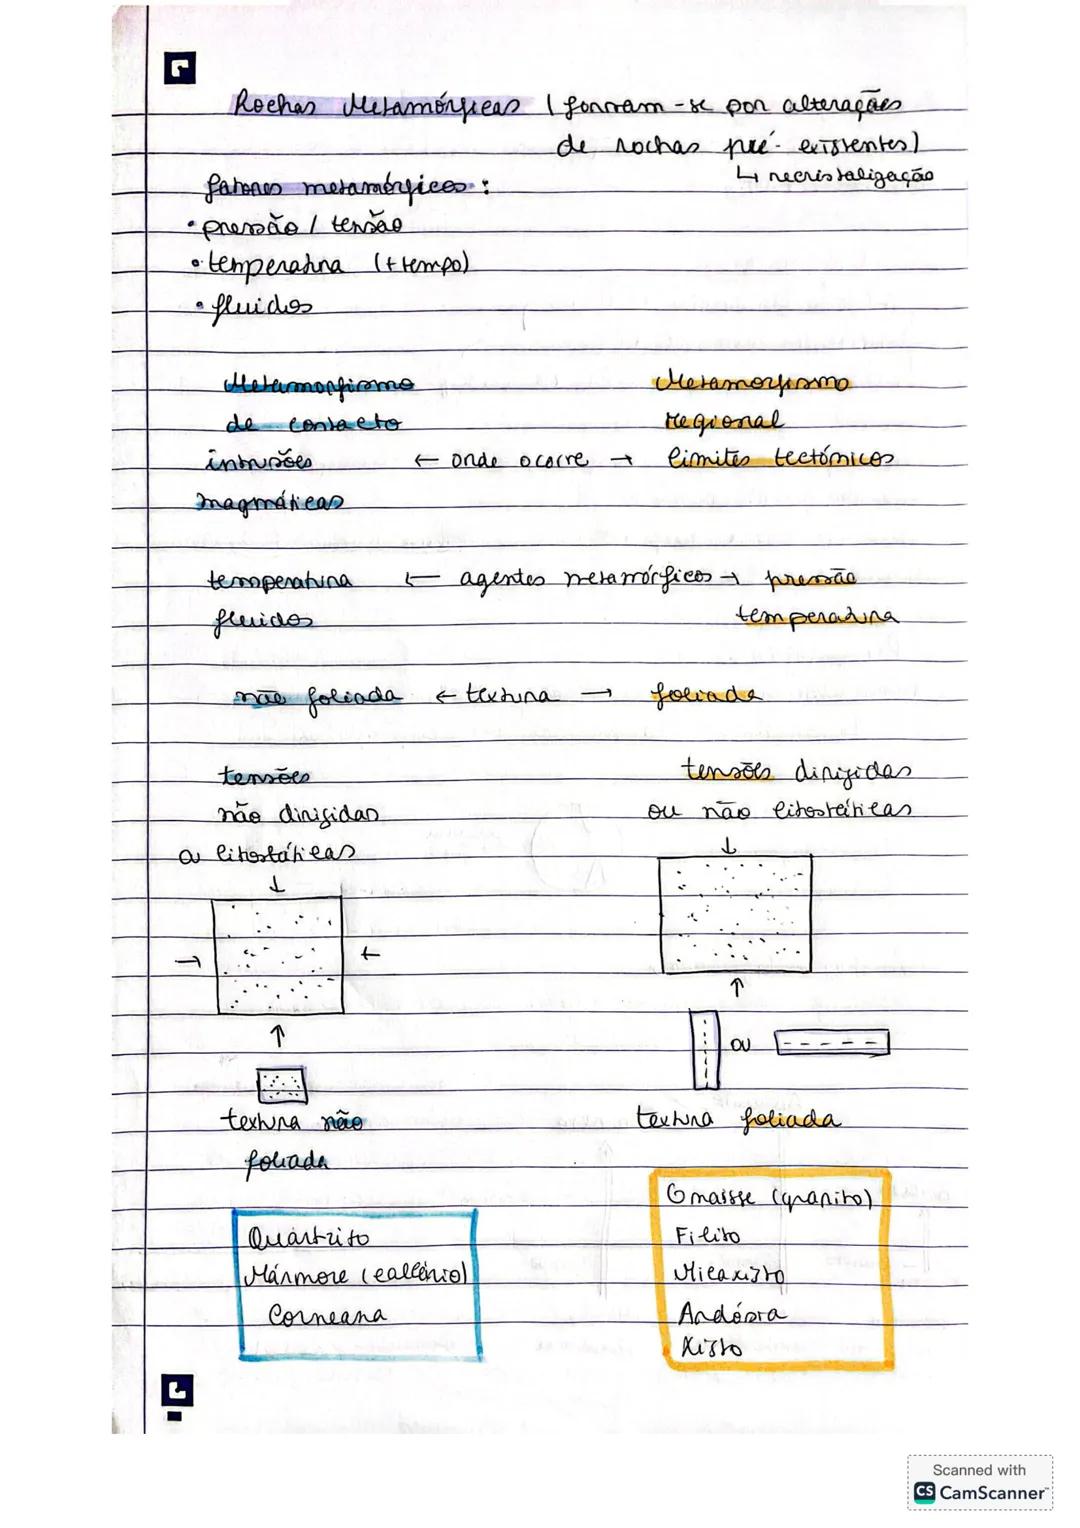 Rochas Metamórficas (formam-se por alterações
de rochas pré-existentes)
↳ recristalização
fatores metamórficos:
• pressão / tensão
• temperatura (+ tempo)
• fluidos
Metamorfismo de contacto
Metamorfismo regional
intrusões magmáticas ← onde ocorre → limites tectónicos
temperatura ← agentes metamórficos → pressão
fluidos temperatura
não foliada ← textura → foliada
tensões
não dirigidas
ou litostáticas
tensões dirigidas
ou não litostáticas
ou
textura não
foliada
textura foliada
Quartzito
Mármore (calcário)
Corneana
Gnaisse (granito)
Filito
Micaxisto
Ardósia
Xisto
Scanned with
CS CamScanner